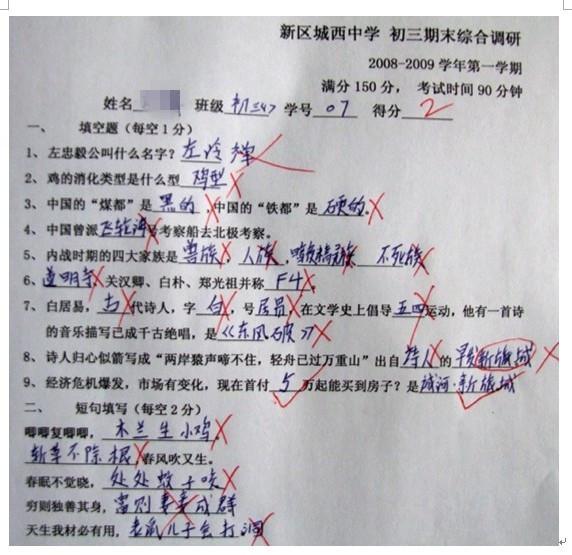 新区城西中学 初三期末综合调研
2008-2009学年第一学期
满分150分，考试时间90分钟
姓名 班级 初三<4> 学号 07 得分 2
一、 填空题（每空1分）
1、左忠毅公叫什么名字？左冷禅
2、鸡的消化类型是什么型 鸡型
3、中国的“煤都”是 黑的 ,中国的“铁都”是 硬的。
4、中国曾派 飞轮海 号考察船去北极考察。
5、内战时期的四大家族是 兽族、人族、暗夜精灵族 不死族
6、道明寺、关汉卿、白朴、郑光祖并称 F4。
7、白居易，古代诗人，字 白，号 居易，在文学史上倡导 五四 运动，他有一首诗
的音乐描写已成千古绝唱，是《东风破》
8、诗人归心似箭写成“两岸猿声啼不住，轻舟已过万重山”出自 诗人 的 早发新旅城
9、经济危机爆发，市场有变化，现在首付 5 万起能买到房子？是 域河·新旅城
二、 短句填写（每空2分）
唧唧复唧唧，木兰生小鸡
斩草不除根，春风吹又生。
春眠不觉晓，处处蚊子咬
穷则独善其身，富则妻妾成群
天生我材必有用，老鼠儿子会打洞